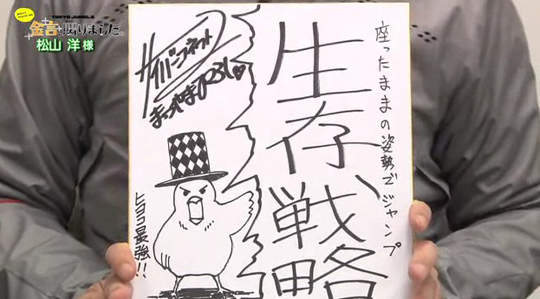 TOKYO JUNGLE
金言 授りました
松山 洋 様
サイバーコネクト
まつやまひろし
座ったままの姿勢でジャンプ
生存戦略
ヒヨコ最強!!